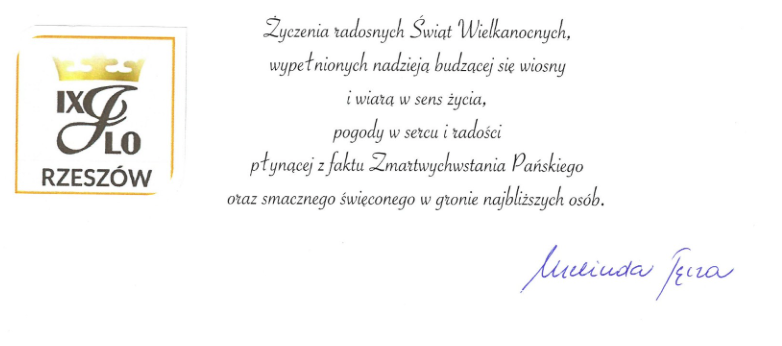 IX LO
RZESZÓW
Życzenia radosnych Świąt Wielkanocnych,
wypełnionych nadzieją budzącej się wiosny
i wiarą w sens życia,
pogody w sercu i radości
płynącej z faktu Zmartwychwstania Pańskiego
oraz smacznego święconego w gronie najbliższych osób.
Melinda Tęcza